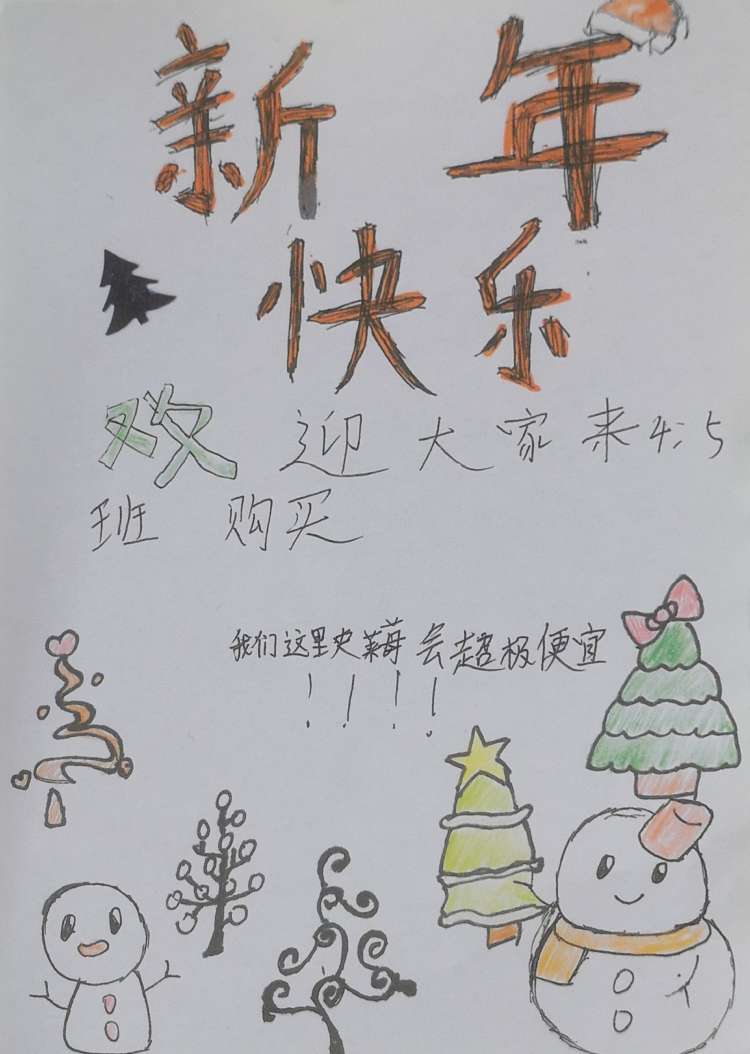 新年
快乐
欢迎大家来4:5
班 购买
我们这里史莱莓会超极便宜
!!!!